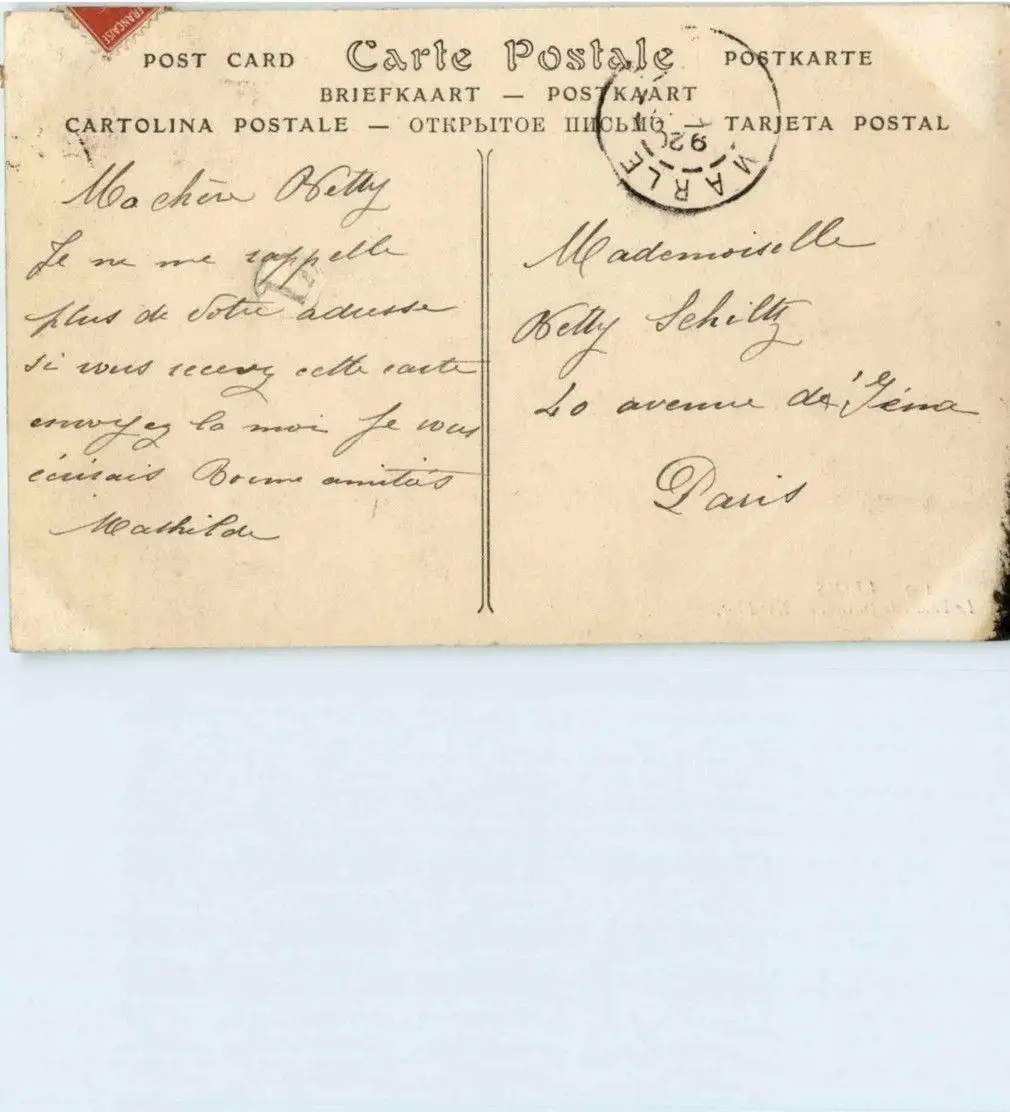 FRANÇAISE
POST CARD Carte Postale POSTKARTE
BRIEFKAART — POSTKAART
CARTOLINA POSTALE — ОТКРЫТОЕ ПИСЬМО — TARJETA POSTAL
MARLE
Ma chère Netty
Je ne me rappelle
plus de Votre adresse
si vous recevez cette carte
envoyez la moi Je vous
écrirais Bonne amitiés
Mathilde
Mademoiselle
Netty Schiltz
20 avenue de Iéna
Paris